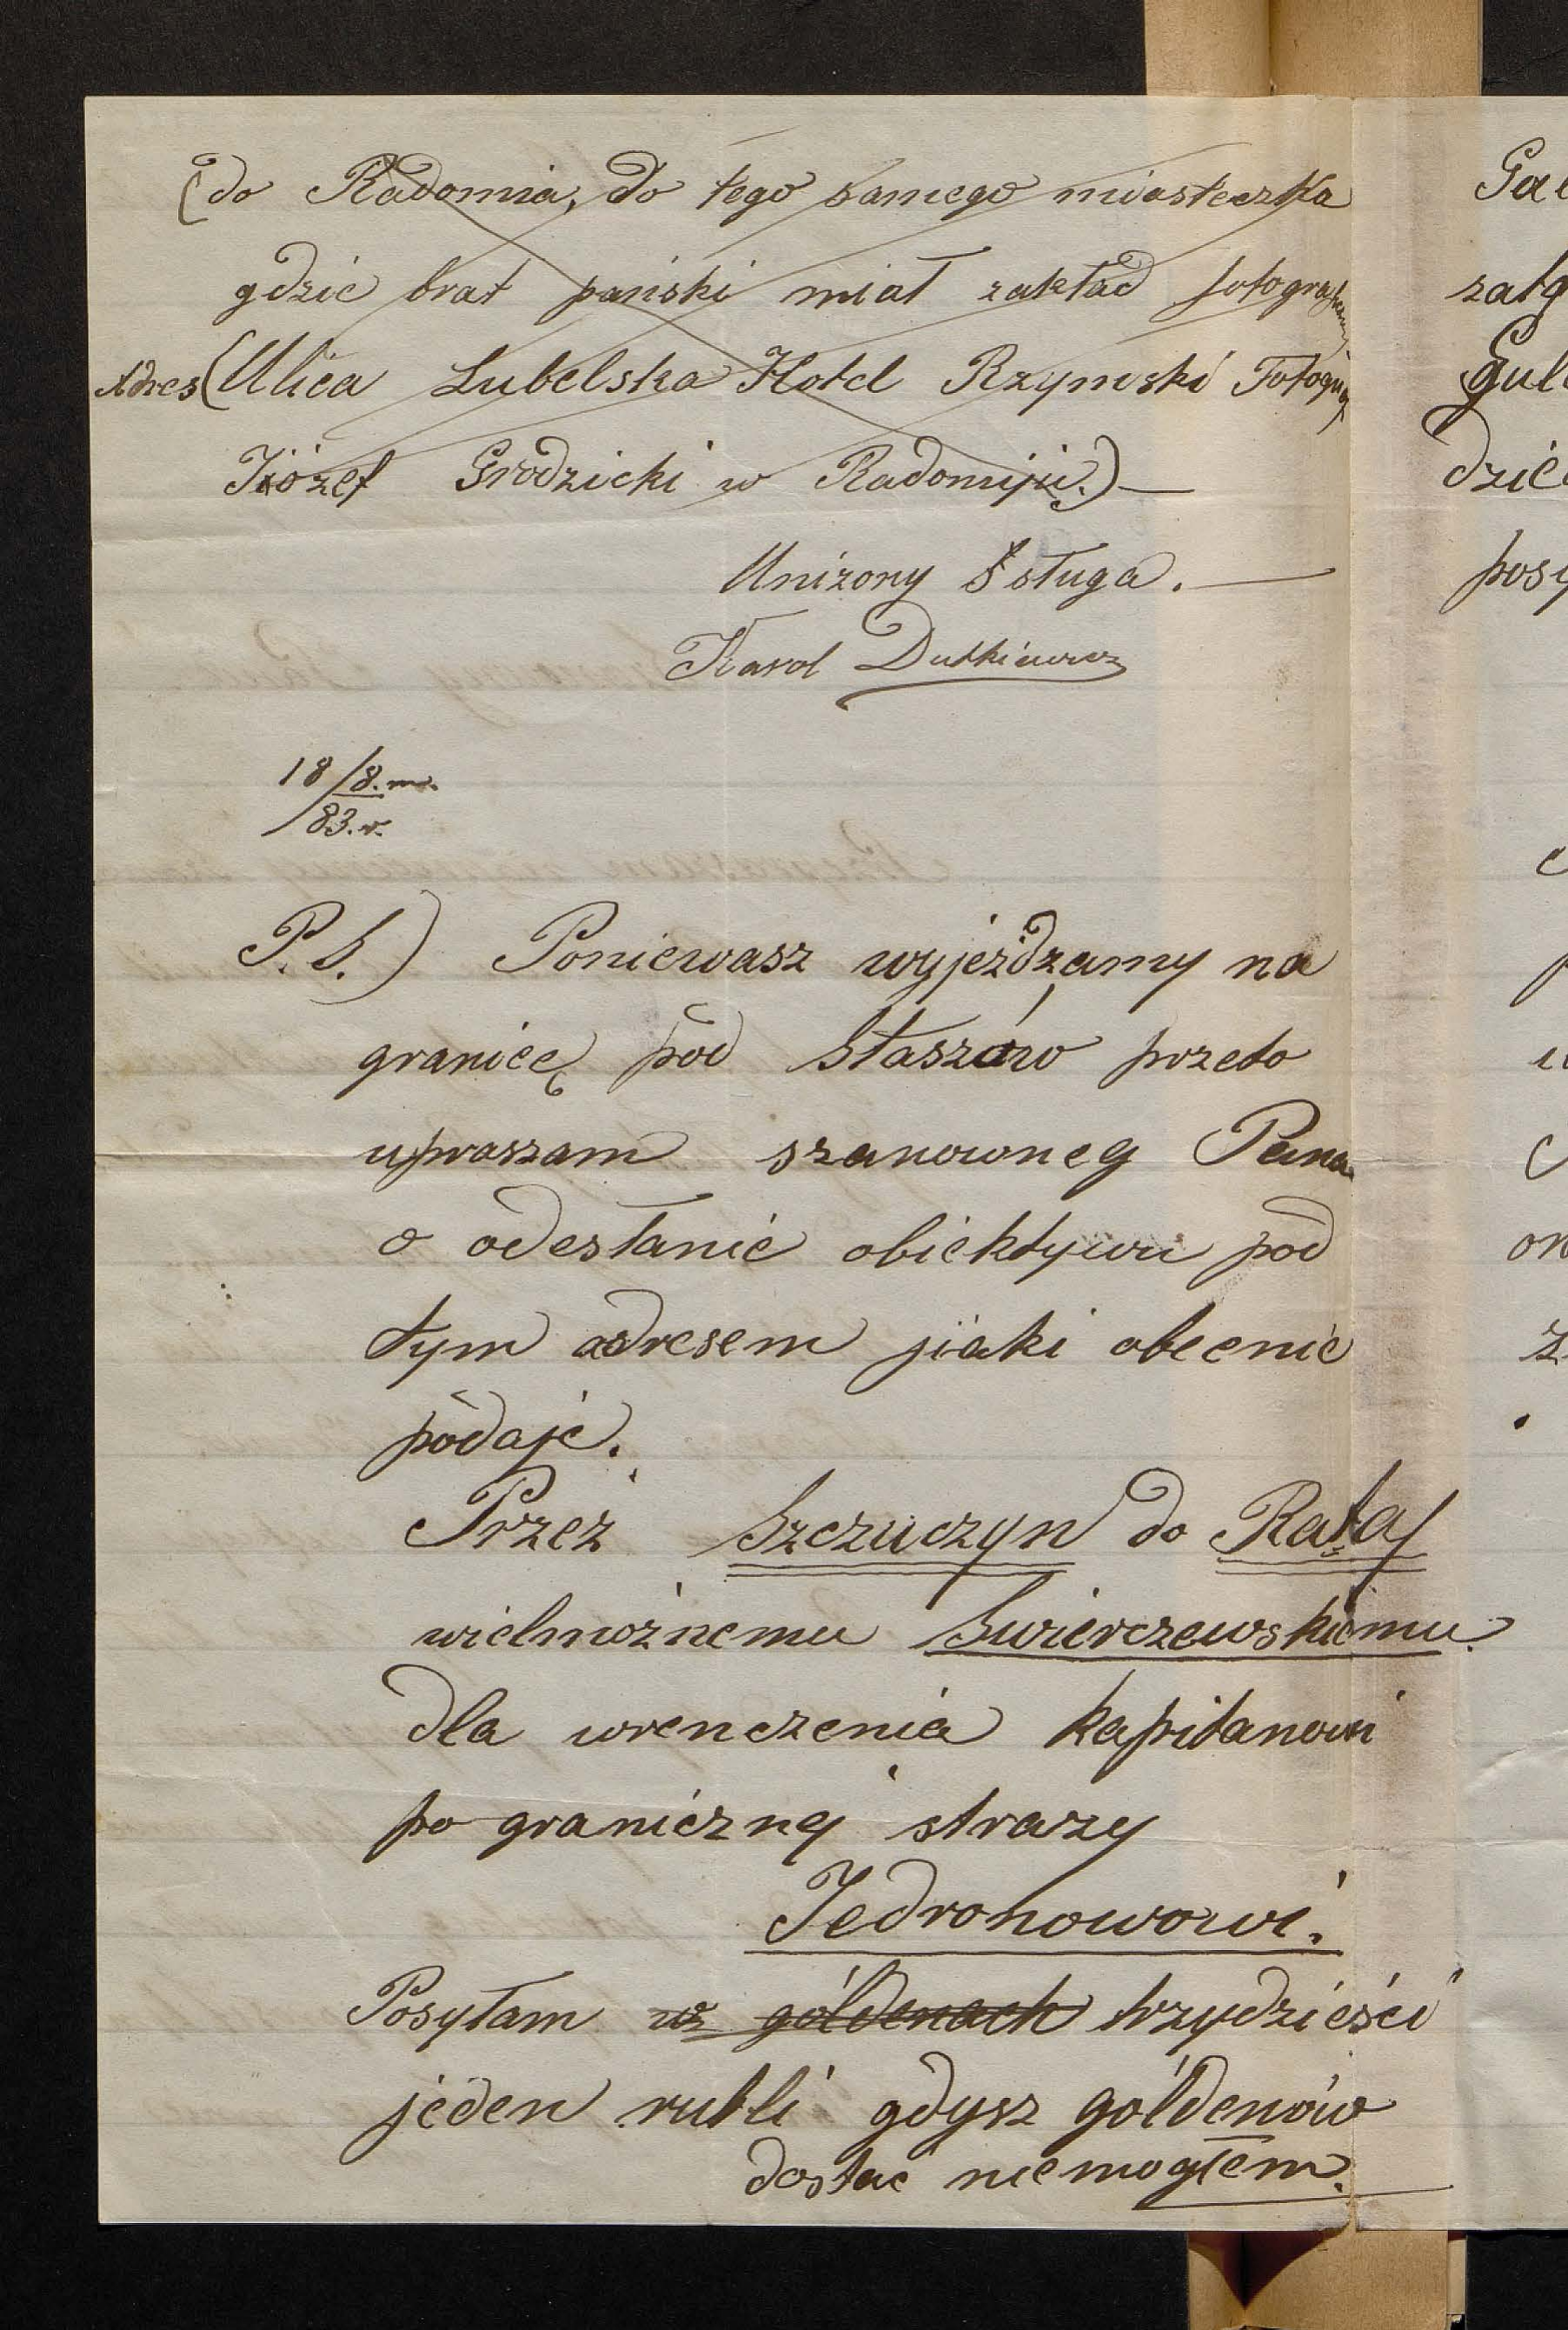 (do Radomia, do tego samego miasteczka
gdzie brat pański miał zakład
Adres (Ulica Lubelska Hotel Rzymski Fotograf
Józef Grodzicki w Radomiju.)—
Uniżony Sługa.—
Karol Dutkiewicz
18/8.m.
/83.r.
P.S.) Poniewasz wyjeżdzamy na
granicę pod Staszów przeto
upraszam szanowneg Pana
o odesłanie obiektywu pod
tym adresem jiaki obecnie
podaję.
Przez Szczuczyn do Rataj
wielmożnemu Swierczewskiemu.
dla wrenczenia kapitanowi
po granicznej straży
Jedronowowi.
Posyłam w góldenach trzydzieści
jeden rubli gdysz góldenów
dostać niemogłem.
Gal
zatg
Gul
dzie
posy
or
z